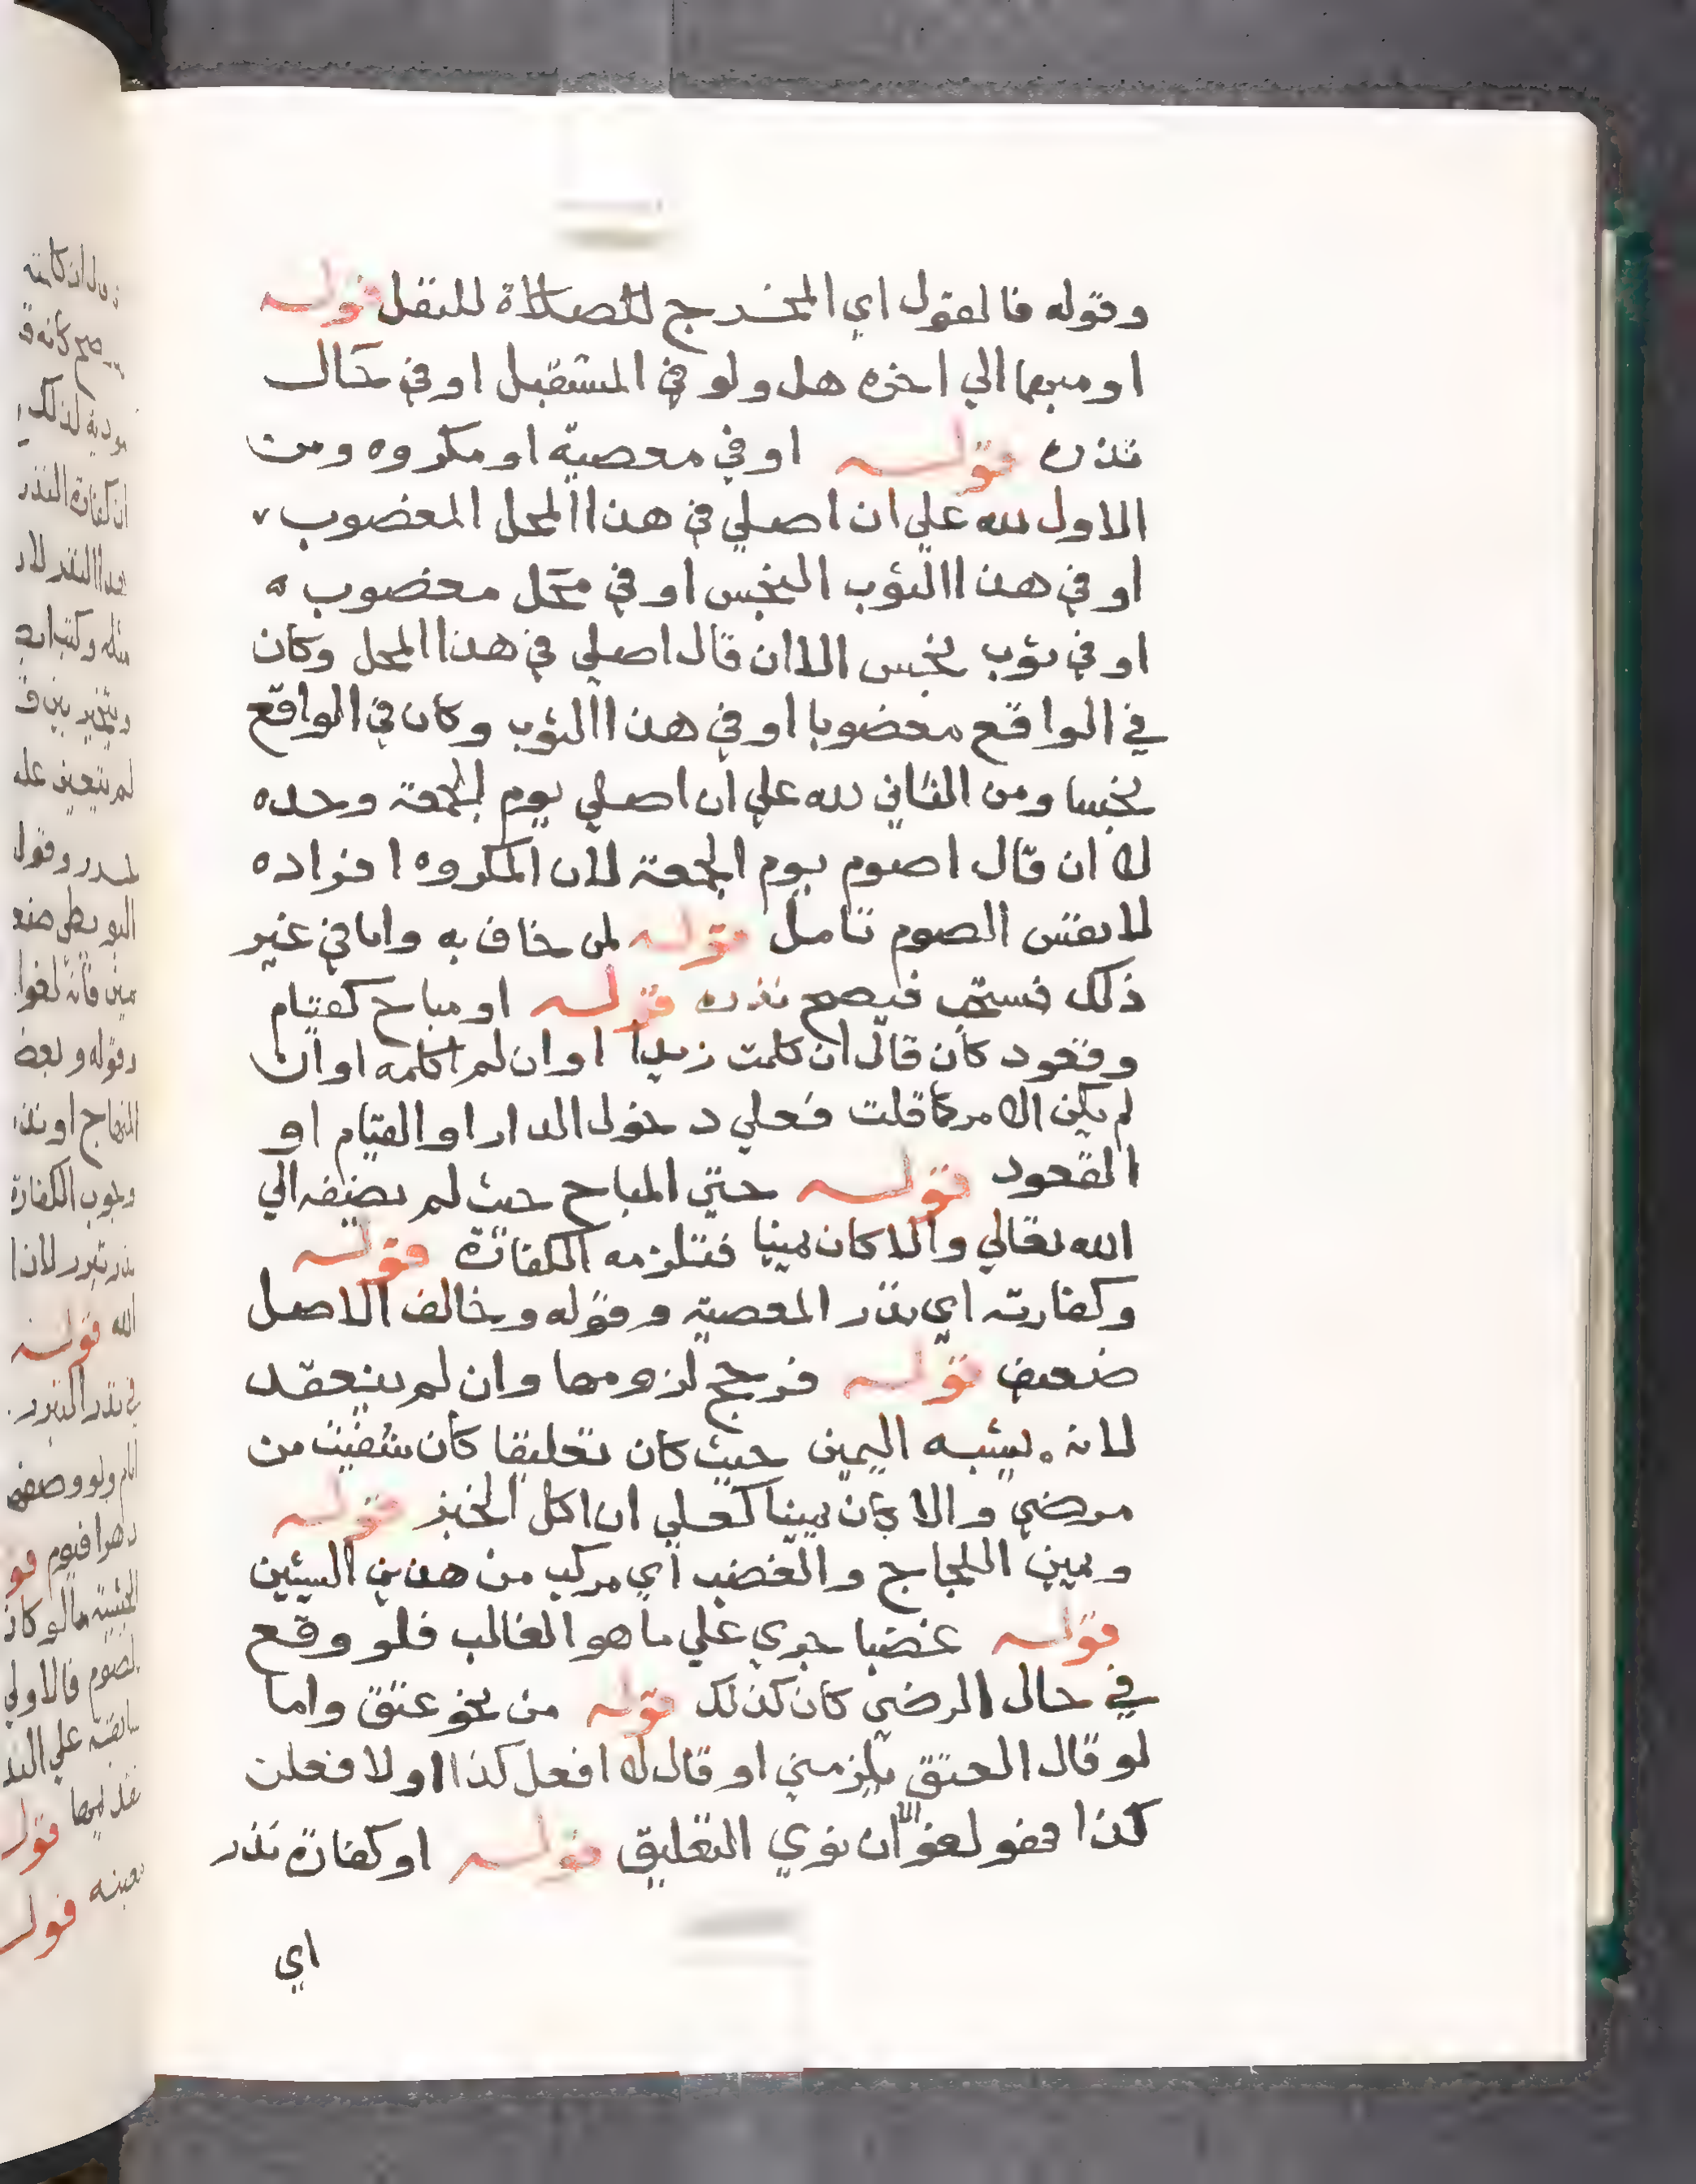 وقوله فالقول اي المخرج للصلاة للنفل قوله
او مبهما الي اخره هل ولو في المستقبل او في حال
نذره قوله او في معصية او مكروه ومن
الاول لله علي ان اصلي في هذا المحل المغصوب
او في هذا الثوب النجس او في محل مغصوب
او في ثوب نجس الا ان قال اصلي في هذا المحل وكان
في الواقع مغصوبا او في هذا الثوب وكان في الواقع
نجسا ومن الثاني لله علي ان اصلي يوم الجمعة وحده
لا ان قال اصوم يوم الجمعة لان المكروه افراده
لا نفس الصوم تامل قوله لمن خاف به واما في غير
ذلك فستحب فيصح نذره قوله او مباح كقيام
وقعود كان قال ان كلمت زيدا او ان لم اكلمه او ان
لم يكن الامر كما قلت فعلي دخول الدار او القيام او
القعود قوله حتي المباح حيث لم يضفه الي
الله تعالي والا كان يمينا فتلزمه الكفارة قوله
وكفارته اي نذر المعصية وقوله وخالف الاصل
ضعيف قوله فرجح لزومها وان لم ينعقد
لانه يشبه اليمين حيث كان تعليقا كان شفيت من
مرضي والا كان يمينا كعلي ان اكل الخبز قوله
ويمين اللجاج والغضب اي مركب من هذين السيئين
قوله غضبا جري علي ما هو الغالب فلو وقع
في حال الرضي كان كذلك قوله من نحو عتق واما
لو قال العتق يلزمني او قال لا افعل كذا او لا فعلت
كذا فهو لغو الا ان نوي التعليق قوله او كفارة نذر
اي